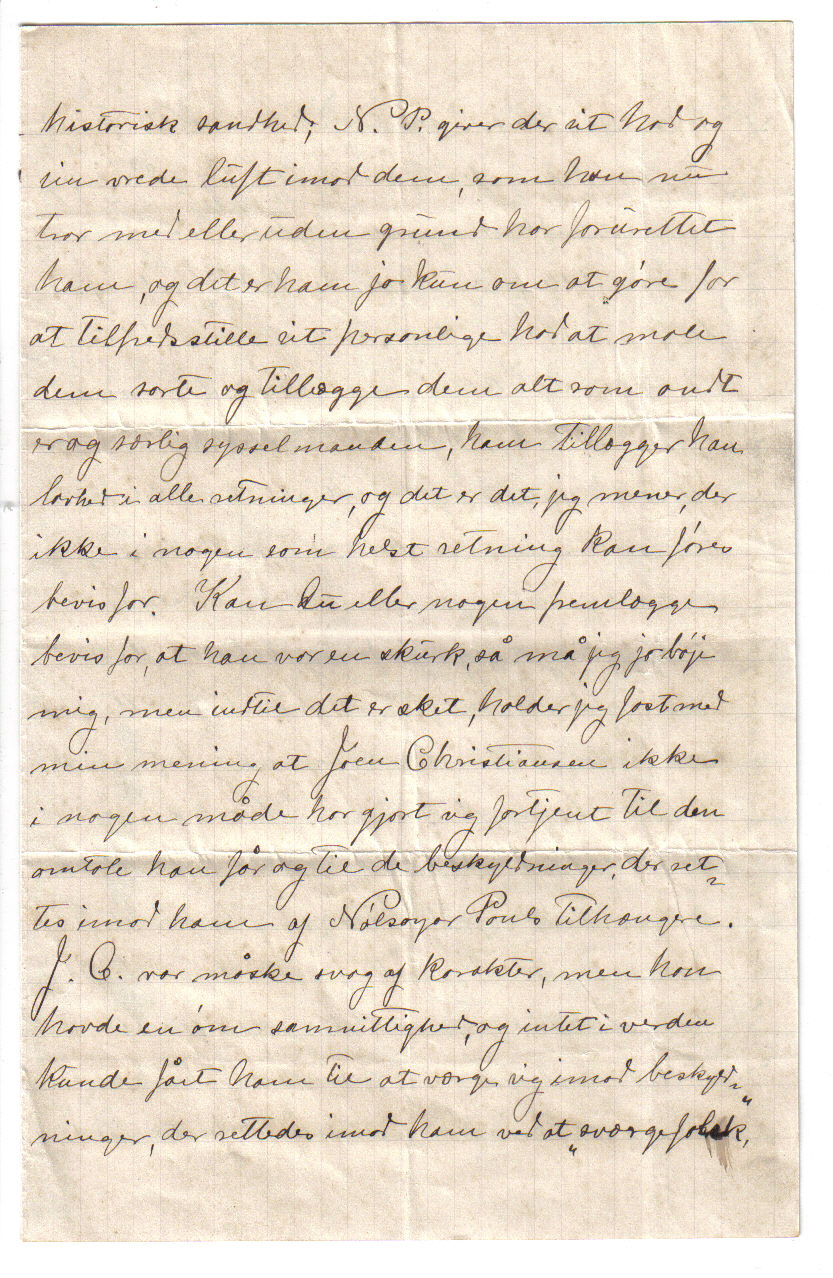 historisk sandhed; N. P. giver der sit had og
sin vrede luft imod dem, som han nu
tror med eller uden grund har forurettet
ham, og det er ham jo kun om at gøre for
at tilfredsstille sit personlige had at male
dem sorte og tillægge dem alt som ondt
er og særlig sysselmanden, ham tillægger han
lavhed i alle retninger, og det er det, jeg mener, der
ikke i nogen som helst retning kan føres
bevis for. Kan Du eller nogen fremlægge
bevis for, at han var en skurk, så må jeg jo bøje
mig, men indtil det er sket, holder jeg fast med
min mening at Joen Christiansen ikke
i nogen måde har gjort sig fortjent til den
omtale han får og til de beskyldninger, der ret-
tes imod ham af Nólsoyar Pouls tilhængere.
J. C. var måske svag af karakter, men han
havde en øm samvittighed, og intet i verden
kunde fået ham til at værge sig imod beskyld-
ninger, der rettedes imod ham ved at "sværge falsk,"